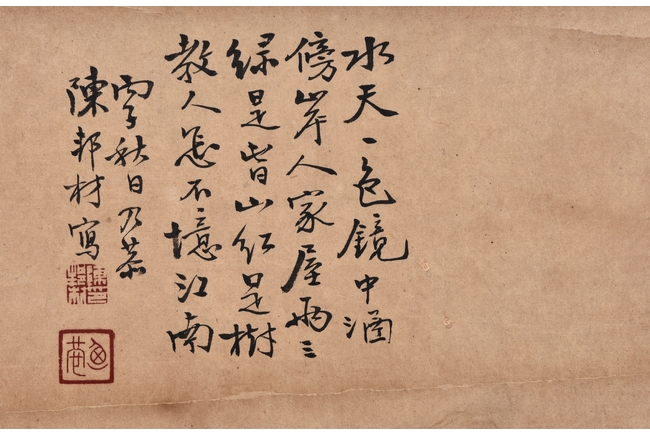 水天一色鏡中涵
傍岸人家屋兩三
緑是皆山紅是樹
教人怎不憶江南
丙子秋日乃恭
陳邦材寫